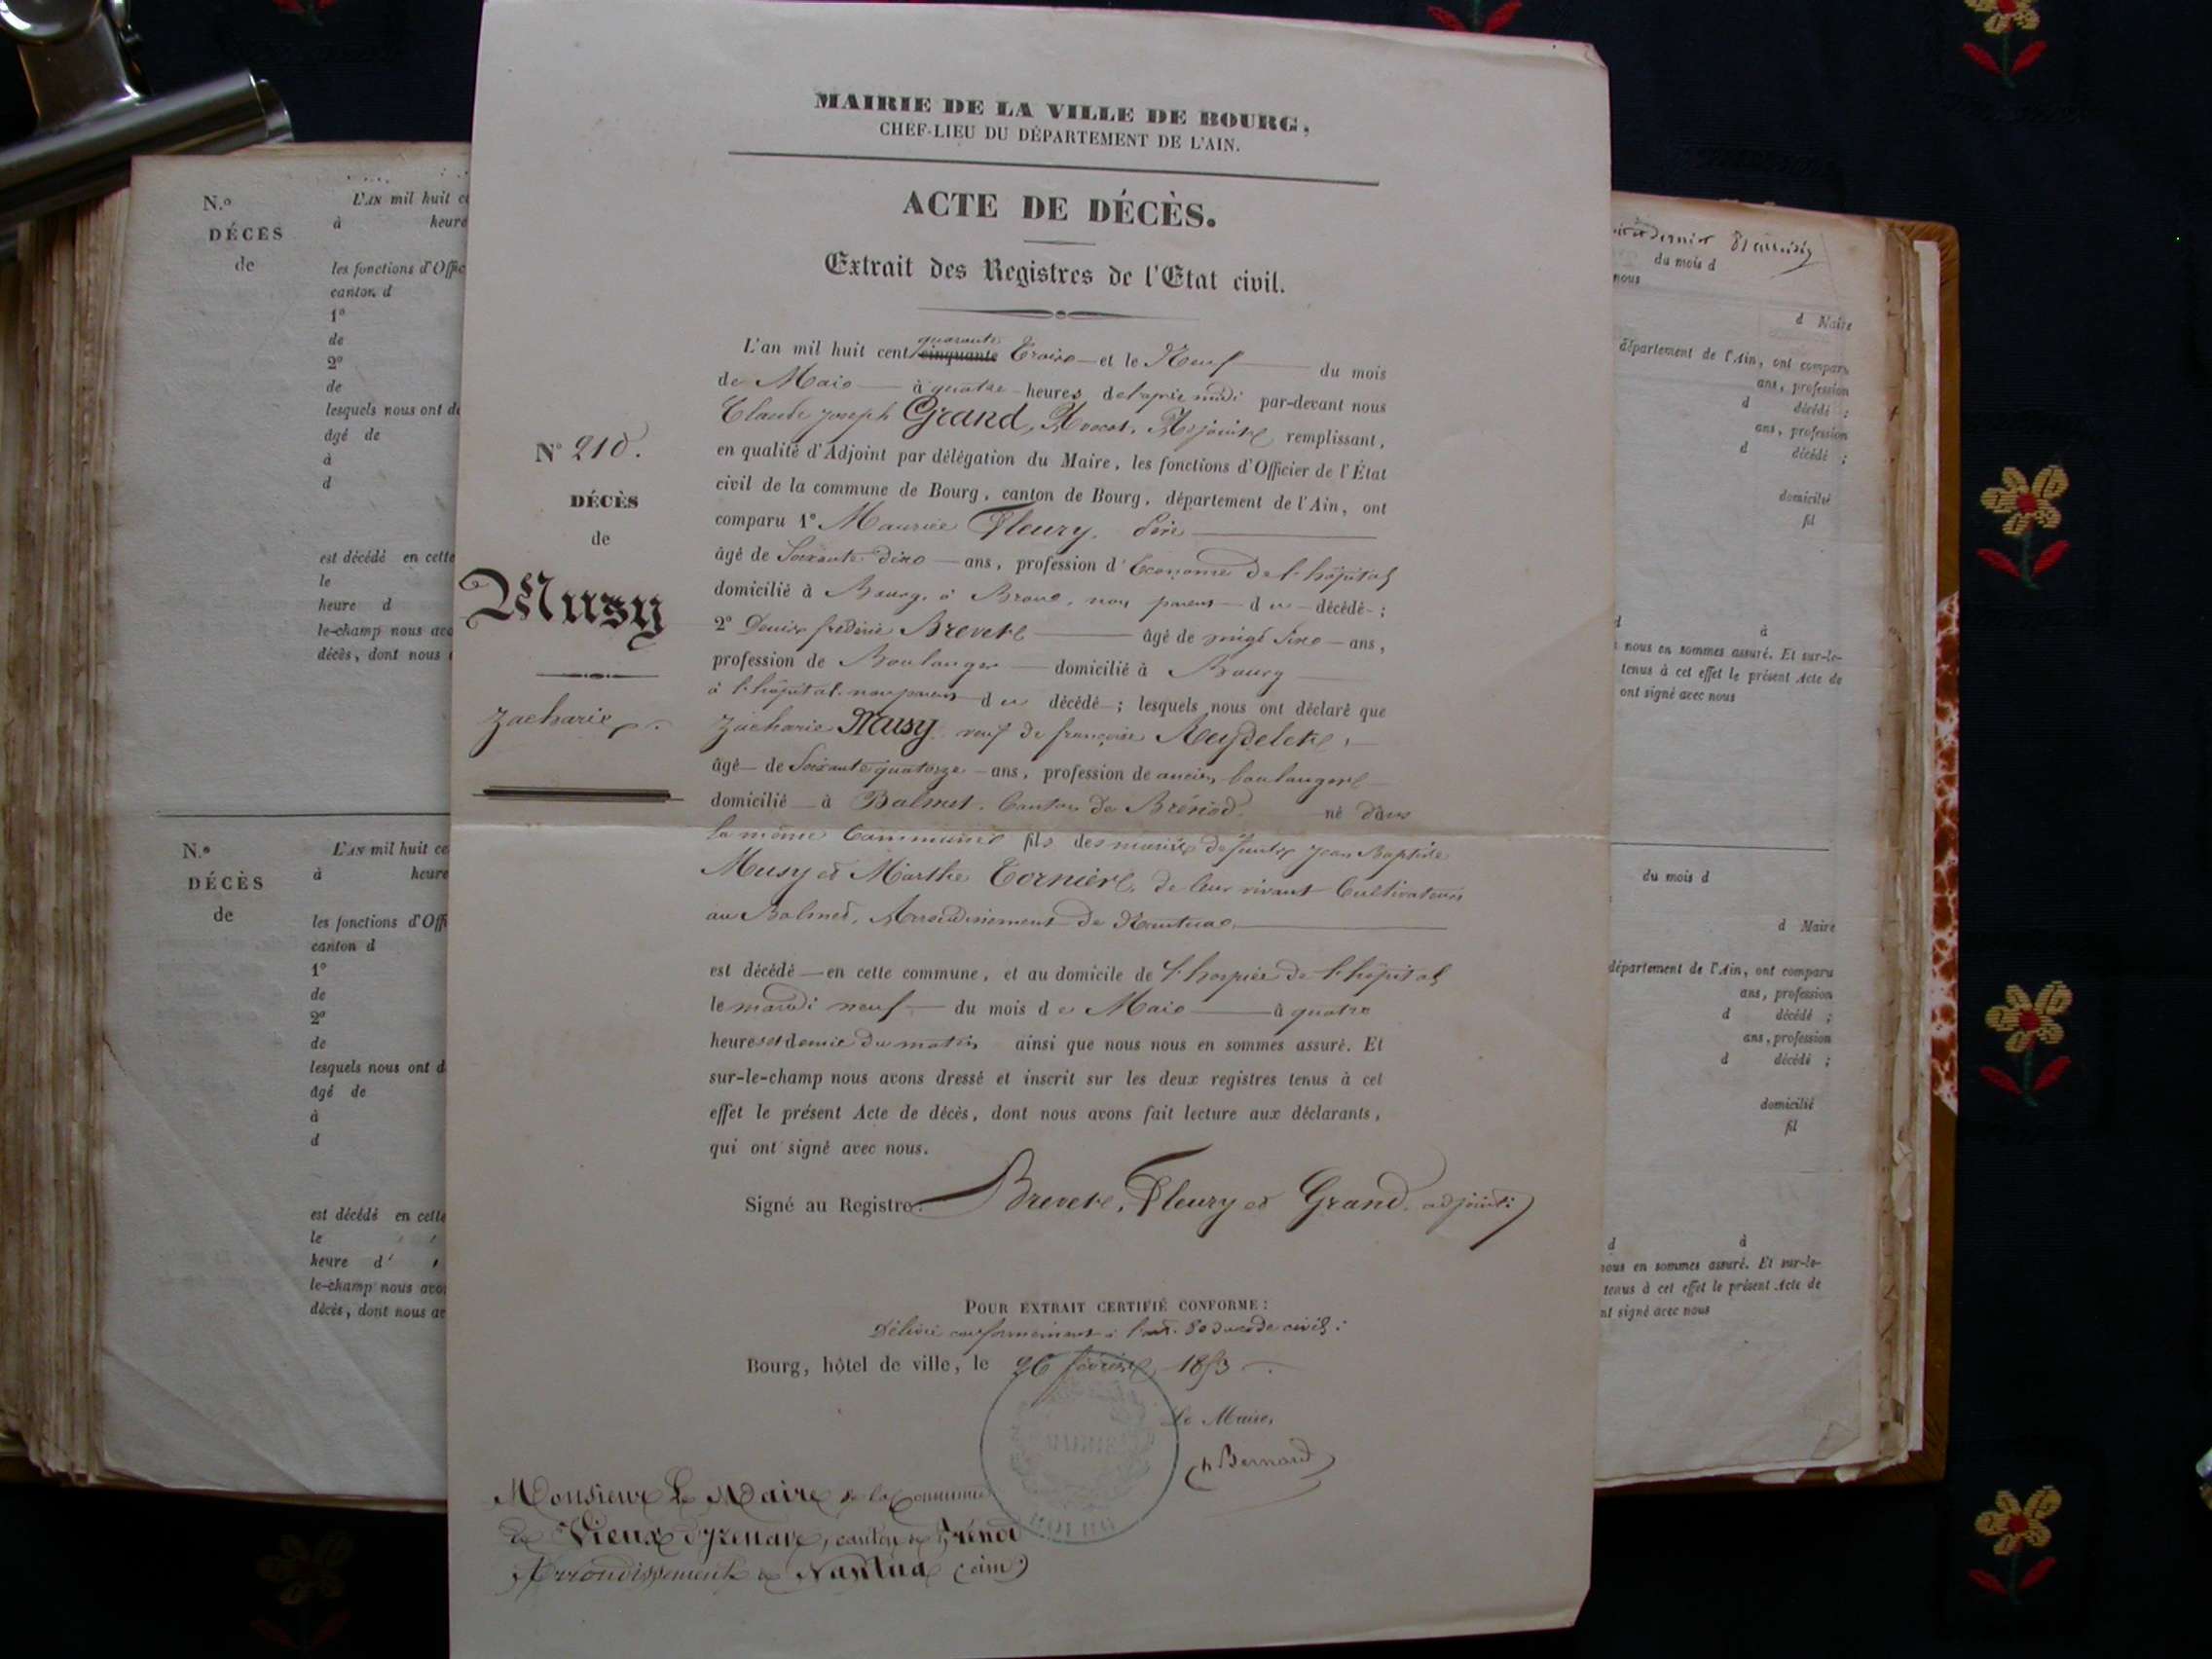 MAIRIE DE LA VILLE DE BOURG,
CHEF-LIEU DU DÉPARTEMENT DE L'AIN.
ACTE DE DÉCÈS.
Extrait des Registres de l'Etat civil.
L'an mil huit cent cinquante quarante Trois et le Neuf du mois
de Mai à quatre heures de l'après midi par-devant nous
Claude joseph Grand, Avocat, Adjoint remplissant,
en qualité d'Adjoint par délégation du Maire, les fonctions d'Officier de l'État
civil de la commune de Bourg, canton de Bourg, département de l'Ain, ont
comparu 1° Maurice Fleury,
âgé de Soixante dix ans, profession d'Econome de l'hôpital
domicilié à Bourg, à Brou, non parent du décédé ;
2° Denis frédéric Brevet âgé de vingt six ans,
profession de Boulanger domicilié à Bourg
à l'hôpital non parent du décédé ; lesquels nous ont déclaré que
Zacharie Musy veuf de françoise Reydelet,
âgé de Soixante quatorze ans, profession de ancien boulanger
domicilié à Balmet, Canton de Brénod, né dans
la même Commune fils des mariés défunts Jean Baptiste
Musy et Marthe Tornier, de leur vivant Cultivateurs
au Balmet, Arrondissement de Nantua
est décédé en cette commune, et au domicile de l'hospice de l'hôpital
le mardi neuf du mois de Mai à quatre
heures et demie du matin ainsi que nous nous en sommes assuré. Et
sur-le-champ nous avons dressé et inscrit sur les deux registres tenus à cet
effet le présent Acte de décès, dont nous avons fait lecture aux déclarants,
qui ont signé avec nous.
Signé au Registre: Brevet, Fleury et Grand, adjoint
POUR EXTRAIT CERTIFIÉ CONFORME :
Délivré conformément à l'art. 80 du code civil :
Bourg, hôtel de ville, le 26 février 1853
Le Maire,
Bernard
Monsieur Le Maire de la Commune
de Vieux d'Izenave, canton de Brénod
Arrondissement de Nantua (ain)
N° 210.
DÉCÈS
de
Musy
Zacharie
N.°
DÉCES
de
L'AN mil huit
à heure
les fonctions d'Offic
canton d
1°
de
2°
de
lesquels nous ont
âgé de
à
d
est décédé en cette
le
heure d
le-champ nous
décès, dont nous
N.°
DÉCÈS
de
L'AN mil huit
à heure
les fonctions d'Offi
canton d
1°
de
2°
de
lesquels nous ont d
âgé de
à
d
est décédé en cette
le
heure d
le-champ nous
décès, dont nous
du mois d
nous
d Maire
département de l'Ain, ont comparu
ans, profession
d décédé ;
ans, profession
d décédé ;
domicilié
fil
d à
nous en sommes assuré. Et sur-le-
tenus à cet effet le présent Acte de
ont signé avec nous
du mois d
d Maire
département de l'Ain, ont comparu
ans, profession
d décédé ;
ans, profession
d décédé ;
domicilié
fil
d à
nous en sommes assuré. Et sur-le-
tenus à cet effet le présent Acte de
nt signé avec nous